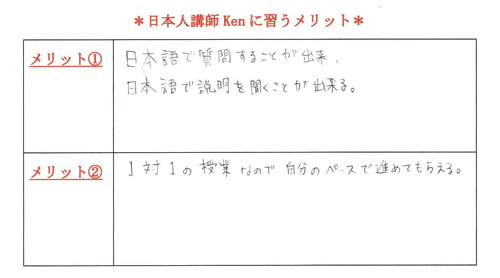 ＊日本人講師Kenに習うメリット＊
メリット①
日本語で質問することが出来、
日本語で説明を聞くことが出来る。
メリット②
1対1の授業なので自分のペースで進めてもらえる。